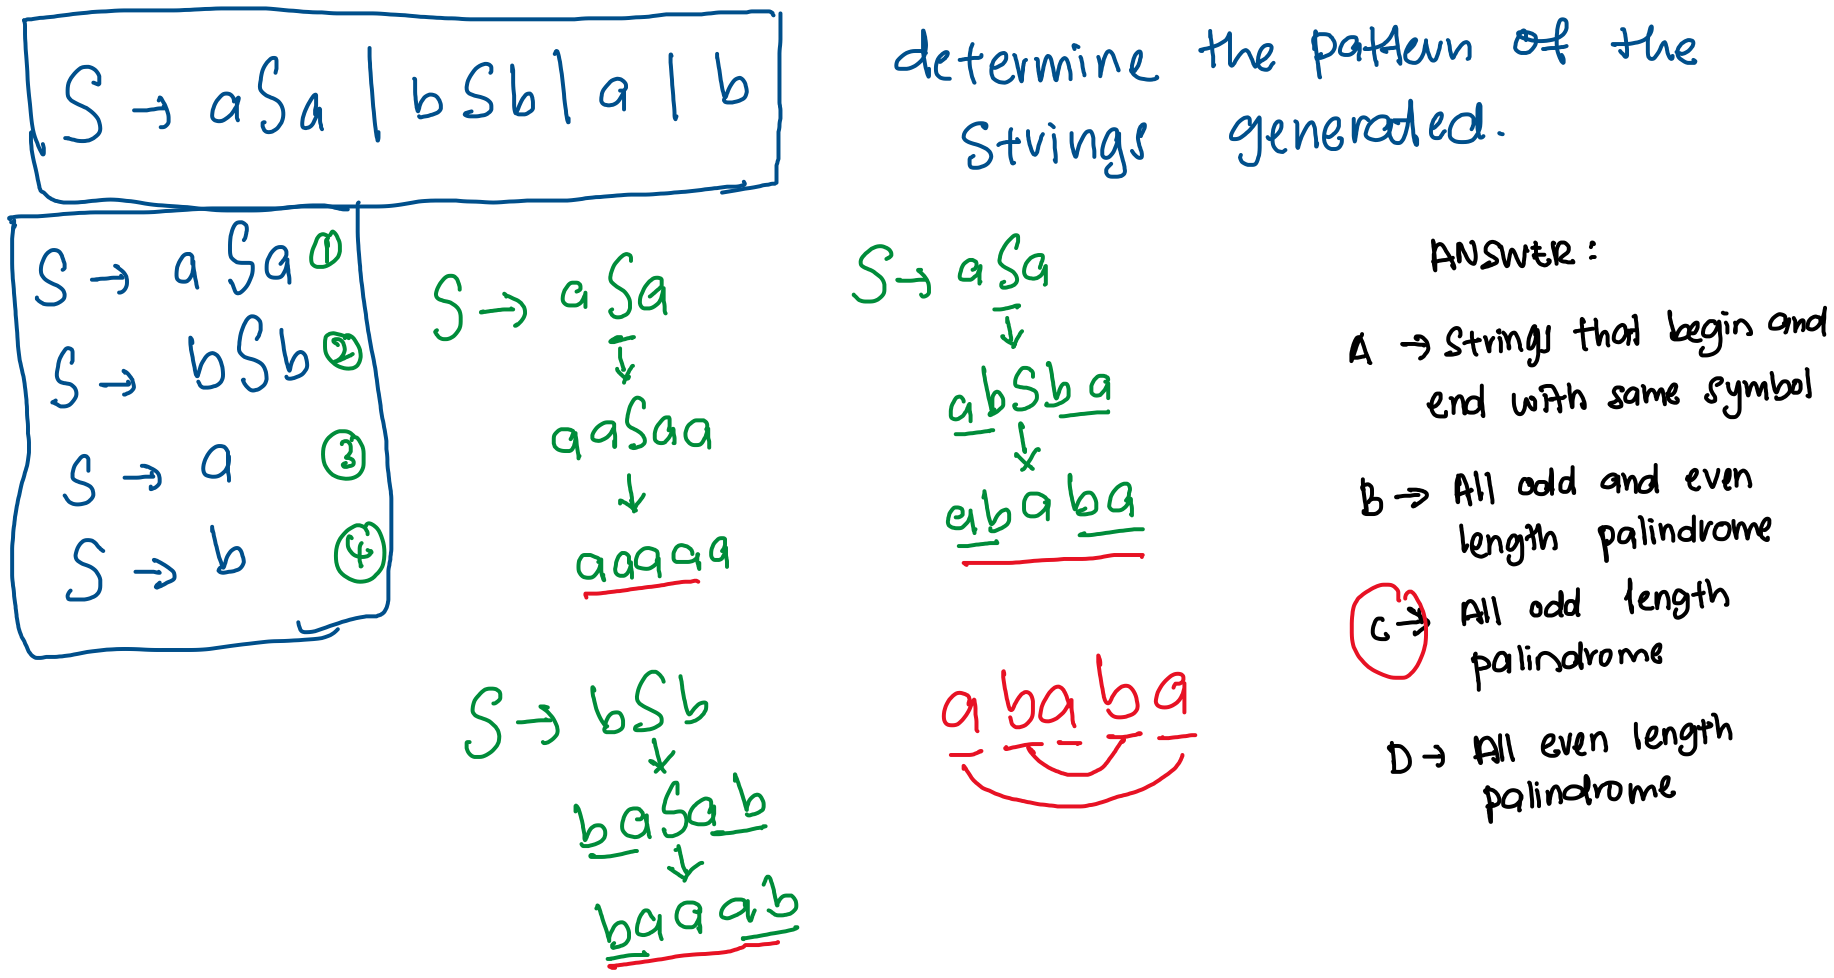 S → aSa | bSb | a | b
determine the pattern of the
strings generated.
S → aSa ①
S → bSb ②
S → a ③
S → b ④
S → aSa
↓
aaSaa
↓
aaaaa
S → aSa
↓
abSba
↓
ababa
S → bSb
↓
baSab
↓
baaab
ababa
ANSWER :
A → Strings that begin and
end with same symbol
B → All odd and even
length palindrome
C → All odd length
palindrome
D → All even length
palindrome